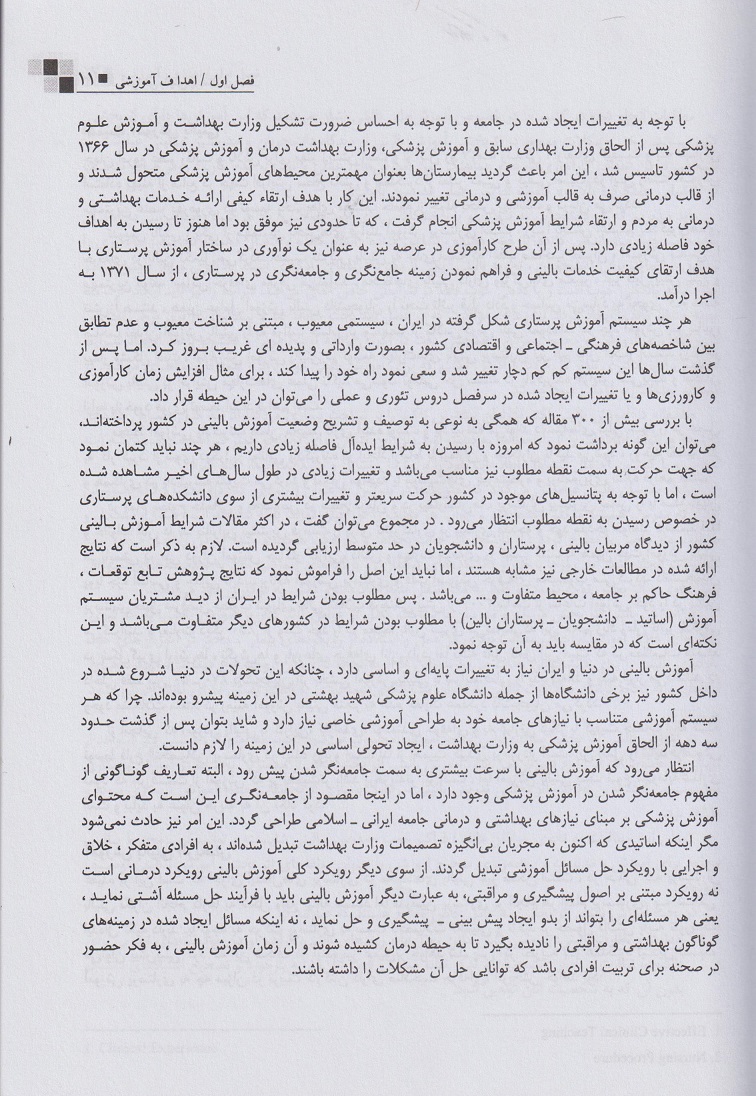 فصل اول / اهداف آموزشی ■ ۱۱
با توجه به تغییرات ایجاد شده در جامعه و با توجه به احساس ضرورت تشکیل وزارت بهداشت و آموزش علوم
پزشکی پس از الحاق وزارت بهداری سابق و آموزش پزشکی، وزارت بهداشت درمان و آموزش پزشکی در سال ۱۳۶۶
در کشور تاسیس شد ، این امر باعث گردید بیمارستان‌ها بعنوان مهمترین محیط‌های آموزش پزشکی متحول شدند و
از قالب درمانی صرف به قالب آموزشی و درمانی تغییر نمودند. این کار با هدف ارتقاء کیفی ارائه خدمات بهداشتی و
درمانی به مردم و ارتقاء شرایط آموزش پزشکی انجام گرفت ، که تا حدودی نیز موفق بود اما هنوز تا رسیدن به اهداف
خود فاصله زیادی دارد. پس از آن طرح کارآموزی در عرصه نیز به عنوان یک نوآوری در ساختار آموزش پرستاری با
هدف ارتقای کیفیت خدمات بالینی و فراهم نمودن زمینه جامع‌نگری و جامعه‌نگری در پرستاری ، از سال ۱۳۷۱ به
اجرا درآمد.
هر چند سیستم آموزش پرستاری شکل گرفته در ایران ، سیستمی معیوب ، مبتنی بر شناخت معیوب و عدم تطابق
بین شاخصه‌های فرهنگی ـ اجتماعی و اقتصادی کشور ، بصورت وارداتی و پدیده ای غریب بروز کرد. اما پس از
گذشت سال‌ها این سیستم کم کم دچار تغییر شد و سعی نمود راه خود را پیدا کند ، برای مثال افزایش زمان کارآموزی
و کارورزی‌ها و یا تغییرات ایجاد شده در سرفصل دروس تئوری و عملی را می‌توان در این حیطه قرار داد.
با بررسی بیش از ۳۰۰ مقاله که همگی به نوعی به توصیف و تشریح وضعیت آموزش بالینی در کشور پرداخته‌اند،
می‌توان این گونه برداشت نمود که امروزه با رسیدن به شرایط ایده‌آل فاصله زیادی داریم ، هر چند نباید کتمان نمود
که جهت حرکت به سمت نقطه مطلوب نیز مناسب می‌باشد و تغییرات زیادی در طول سال‌های اخیر مشاهده شده
است ، اما با توجه به پتانسیل‌های موجود در کشور حرکت سریعتر و تغییرات بیشتری از سوی دانشکده‌های پرستاری
در خصوص رسیدن به نقطه مطلوب انتظار می‌رود . در مجموع می‌توان گفت ، در اکثر مقالات شرایط آموزش بالینی
کشور از دیدگاه مربیان بالینی ، پرستاران و دانشجویان در حد متوسط ارزیابی گردیده است. لازم به ذکر است که نتایج
ارائه شده در مطالعات خارجی نیز مشابه هستند ، اما نباید این اصل را فراموش نمود که نتایج پژوهش تابع توقعات ،
فرهنگ حاکم بر جامعه ، محیط متفاوت و ... می‌باشد . پس مطلوب بودن شرایط در ایران از دید مشتریان سیستم
آموزش (اساتید ـ دانشجویان ـ پرستاران بالین) با مطلوب بودن شرایط در کشورهای دیگر متفاوت می‌باشد و این
نکته‌ای است که در مقایسه باید به آن توجه نمود.
آموزش بالینی در دنیا و ایران نیاز به تغییرات پایه‌ای و اساسی دارد ، چنانکه این تحولات در دنیا شروع شده در
داخل کشور نیز برخی دانشگاه‌ها از جمله دانشگاه علوم پزشکی شهید بهشتی در این زمینه پیشرو بوده‌اند. چرا که هر
سیستم آموزشی متناسب با نیازهای جامعه خود به طراحی آموزشی خاصی نیاز دارد و شاید بتوان پس از گذشت حدود
سه دهه از الحاق آموزش پزشکی به وزارت بهداشت ، ایجاد تحولی اساسی در این زمینه را لازم دانست.
انتظار می‌رود که آموزش بالینی با سرعت بیشتری به سمت جامعه‌نگر شدن پیش رود ، البته تعاریف گوناگونی از
مفهوم جامعه‌نگر شدن در آموزش پزشکی وجود دارد ، اما در اینجا مقصود از جامعه‌نگری این است که محتوای
آموزش پزشکی بر مبنای نیازهای بهداشتی و درمانی جامعه ایرانی ـ اسلامی طراحی گردد. این امر نیز حادث نمی‌شود
مگر اینکه اساتیدی که اکنون به مجریان بی‌انگیزه تصمیمات وزارت بهداشت تبدیل شده‌اند ، به افرادی متفکر ، خلاق
و اجرایی با رویکرد حل مسائل آموزشی تبدیل گردند. از سوی دیگر رویکرد کلی آموزش بالینی رویکرد درمانی است
نه رویکرد مبتنی بر اصول پیشگیری و مراقبتی، به عبارت دیگر آموزش بالینی باید با فرآیند حل مسئله آشتی نماید ،
یعنی هر مسئله‌ای را بتواند از بدو ایجاد پیش بینی ـ پیشگیری و حل نماید ، نه اینکه مسائل ایجاد شده در زمینه‌های
گوناگون بهداشتی و مراقبتی را نادیده بگیرد تا به حیطه درمان کشیده شوند و آن زمان آموزش بالینی ، به فکر حضور
در صحنه برای تربیت افرادی باشد که توانایی حل آن مشکلات را داشته باشند.